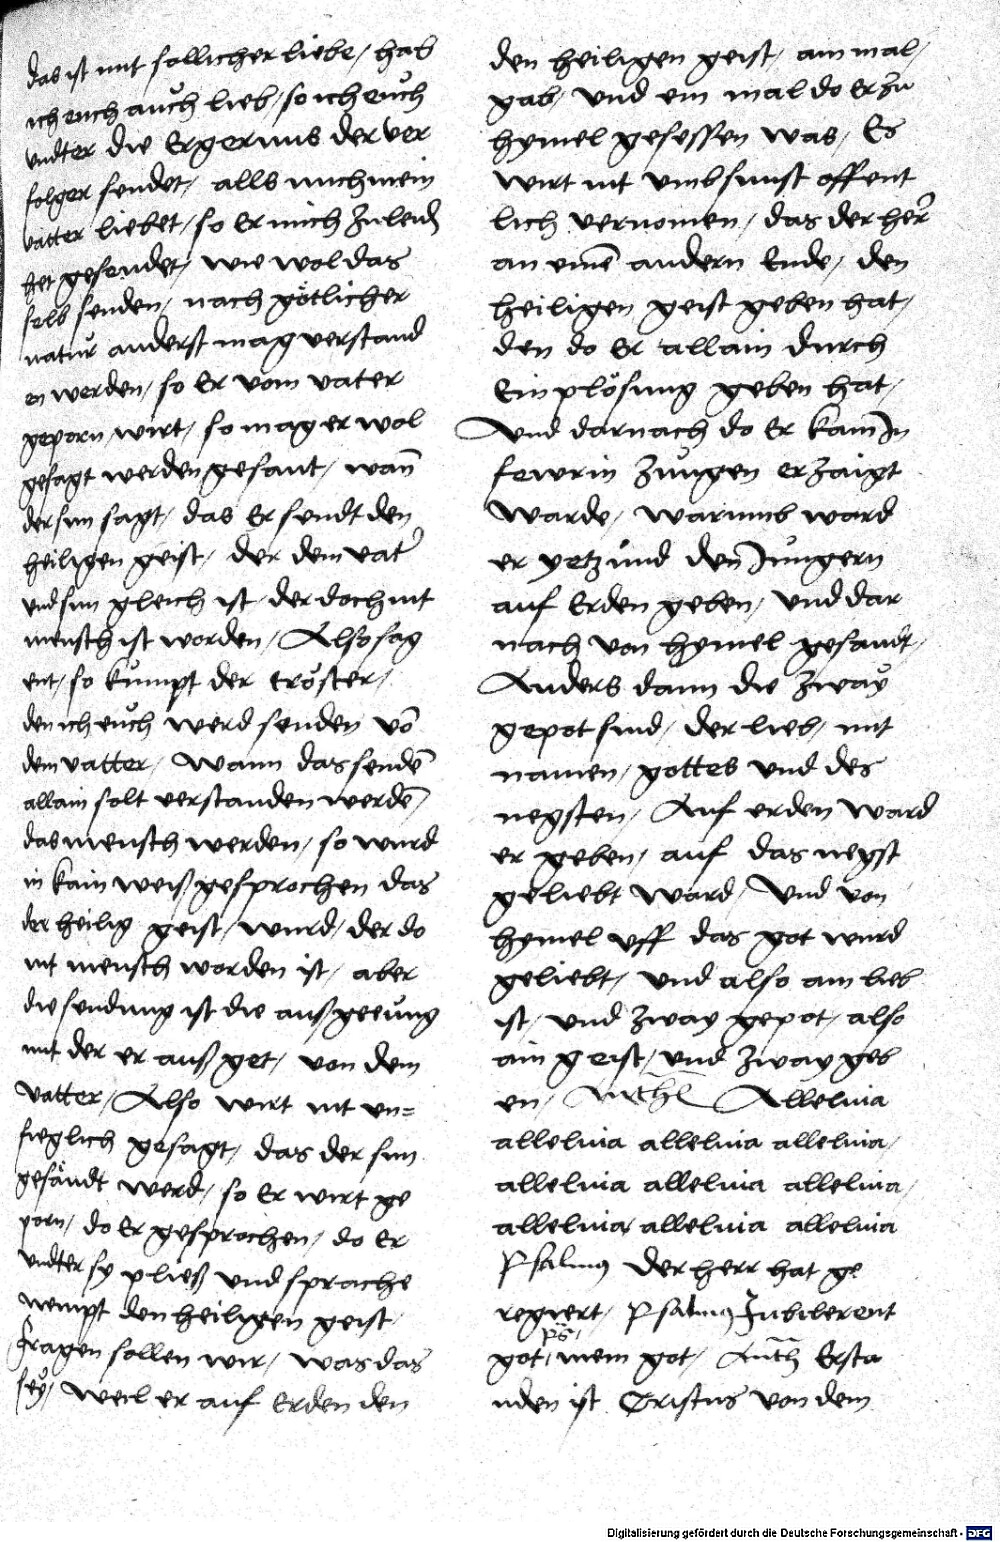 das ist mit sollicher liebe / hab
ich euch auch lieb / so ich euch
undter die Ergernus der ver
folger sendet / alls mich mein
vatter liebet / so Er mich zu leid
het gesendet / wie wol das
selb senden / nach götlicher
natur anderst mag verstand
en werden / so Er vom vater
geporn wirt / so mag er wol
gesagt werden gesant / wan̄
der sun sagt / das Er sendt den
heiligen geist / der dem vat̓
und sun gleich ist der doch nit
mensch ist worden / Also sag
ent / so kumpt der tröster /
den ich euch werd senden vō
dem vatter / Wann das sendē
allain solt verstanden werdē /
das mensch werden / so wurd
in kain weiß gesprochen das
der heilig geist / wurd / der do
nit mensch worden ist / aber
die sendung ist die ausßgeeung
mit der er auß get / von dem
vatter / Also wirt nit un=
fieglich gesagt / das der sun
gesändt werd / so Er wirt ge
porn / do Er gesprochen / do Er
undter sy pließ und sprache
nempt den heiligen geist /
fragen sollen wir / was das
sey / weil er auf Erden den
den heiligen geist / ain mal /
gab / und ein mal do Er zu
hymel gesessen was / Es
wirt nit umbsunst offent
lich vernomen / das der her̓
an einē andern Ende / den
heiligen geist geben hat /
den do Er allain durch
Einplösung geben hat /
Und darnach do Er kam In
fewrin zungen erzaigt
warde / warumb ward
er yetzund den Jungern
auf Erden geben / und dar
nach von hymel gesandt /
Anders dann die zway
gepot sind / der lieb / mit
namen / gottes und des
negsten / Auf erden ward
er geben / auf das negst
geliebt ward / Und von
hymel uff das got wurd
geliebt / und also ain lieb
ist / und zway gepot / also
ain geist / und zway geb
en / Alleluia
alleluia alleluia alleluia /
alleluia alleluia alleluia /
alleluia / alleluia alleluia
Psalmus der herr hat ge
regiert / Psalmus Jubilerent
ps̄ /
got / mein got / Antħ Ersta
nden ist Cristus von dem
Digitalisierung gefördert durch die Deutsche Forschungsgemeinschaft - DFG